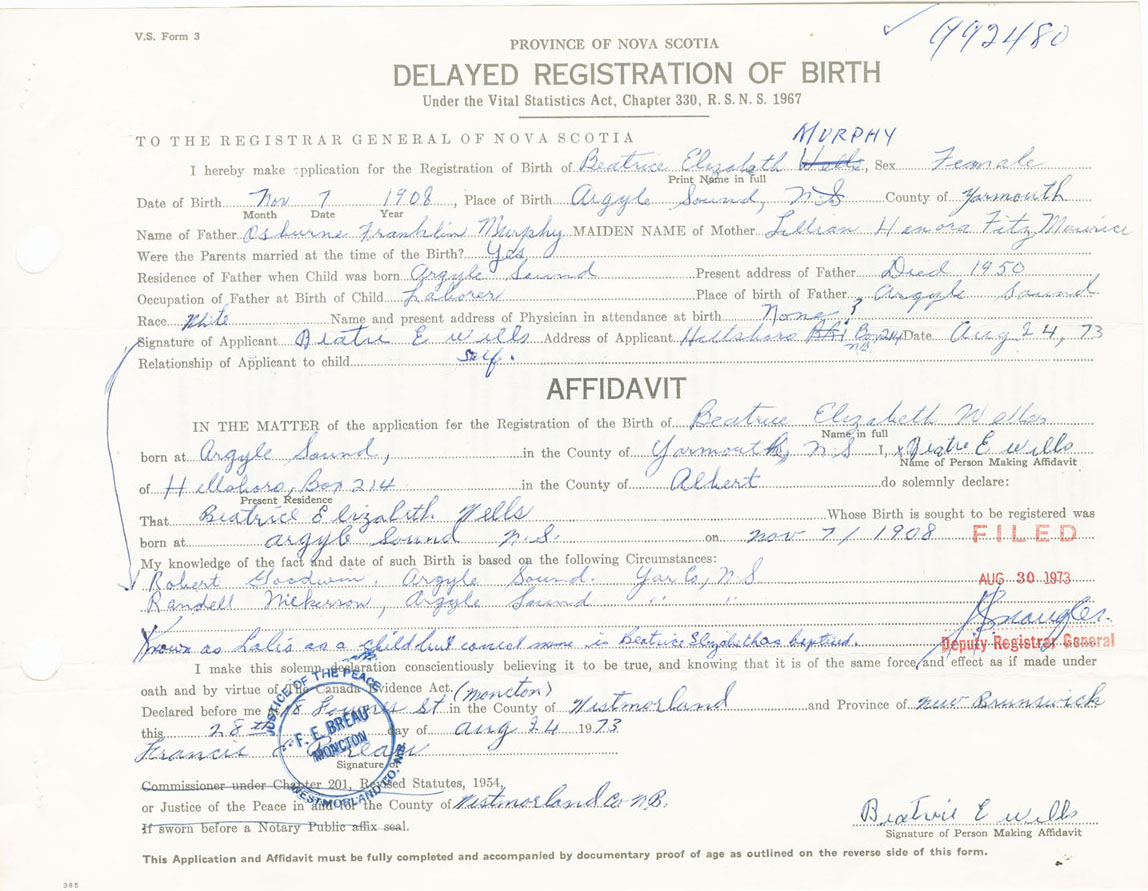 V.S. Form 3
992480
PROVINCE OF NOVA SCOTIA
DELAYED REGISTRATION OF BIRTH
Under the Vital Statistics Act, Chapter 330, R.S.N.S. 1967
TO THE REGISTRAR GENERAL OF NOVA SCOTIA
MURPHY
I hereby make application for the Registration of Birth of Beatrice Elizabeth Wells, Sex Female
Print Name in full
Date of Birth Nov 7 1908, Place of Birth Argyle Sound, NS County of Yarmouth
Month Date Year
Name of Father Osburne Franklin Murphy MAIDEN NAME of Mother Lillian Henora Fitz Maurice
Were the Parents married at the time of the Birth? Yes
Residence of Father when Child was born Argyle Sound Present address of Father Died 1950
Occupation of Father at Birth of Child Laborer Place of birth of Father Argyle Sound
Race White Name and present address of Physician in attendance at birth None ?
Signature of Applicant Beatrie E wills Address of Applicant Hillsboro Box 214 Date Aug 24, 73
NB
Relationship of Applicant to child Self.
AFFIDAVIT
IN THE MATTER of the application for the Registration of the Birth of Beatrice Elizabeth Wells
Name in full
born at Argyle Sound, in the County of Yarmouth, N S I, x Beatrie E wills
Name of Person Making Affidavit
of Hillsboro, Box 214 in the County of Albert do solemnly declare:
Present Residence
That Beatrice Elizabeth Wells Whose Birth is sought to be registered was
born at Argyle Sound N.S. on Nov 7/1908 FILED
My knowledge of the fact and date of such Birth is based on the following Circumstances:
Robert Goodwin. Argyle Sound. Yar Co, N S AUG 30 1973
Randell Nickerson, Argyle Sound " "
Known as Lolis as a child but correct name is Beatrice Elizabeth as baptised. Deputy Registrar General
I make this solemn declaration conscientiously believing it to be true, and knowing that it is of the same force and effect as if made under
oath and by virtue of The Canada Evidence Act. (Moncton)
Declared before me at St in the County of Westmorland and Province of New Brunswick
this 28th day of Aug 24 1973
Francis E Breau
Signature of
JUSTICE OF THE PEACE
F. E. BREAU
MONCTON
WESTMORLAND CO. N.B.
Commissioner under Chapter 201, Revised Statutes, 1954,
or Justice of the Peace in and for the County of Westmorland Co N.B.
If sworn before a Notary Public affix seal.
Beatrie E wills
Signature of Person Making Affidavit
This Application and Affidavit must be fully completed and accompanied by documentary proof of age as outlined on the reverse side of this form.
385